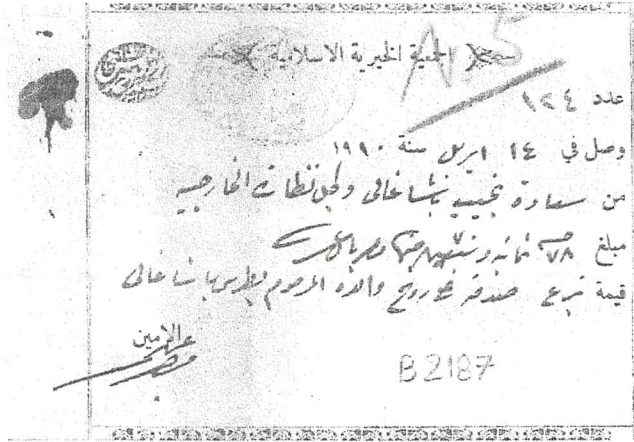 الجمعية الخيرية الاسلامية
A. 5
عدد ١٢٤
وصل في ١٤ ابريل سنة ١٩١٠
من سعادة نجيب باشا غالى وكيل نظارة الخارجيه
مبلغ ٧٨
قيمة تبرع صدقة على روح والده المرحوم بطرس باشا غالى
الامين
B2187